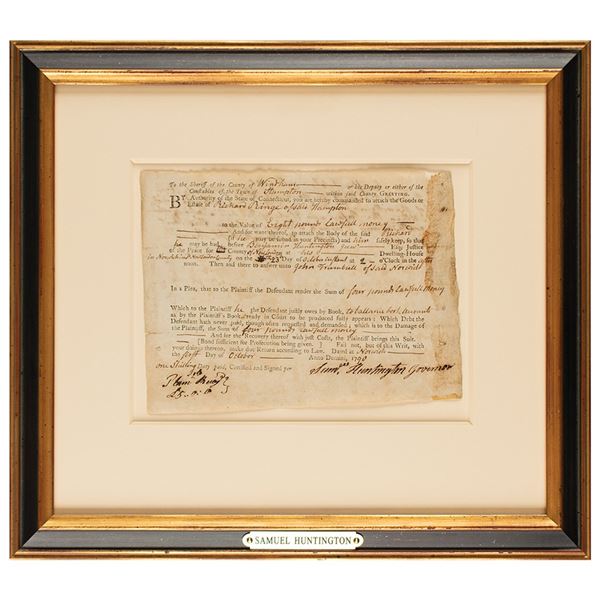 To the Sheriff of the County of Windham or his Deputy or either of the
Constables of the Town of Hampton within said County, GREETING.
BY Authority of the State of Connecticut, you are hereby commanded to attach the Goods or
Estate of Richard Ringe of said Hampton
to the Value of Eight pounds Lawfull money
And for want thereof, to attach the Body of the said Richard
(if he may be found in your Precincts) and him safely keep, so that
he may be had before Benjamin Huntington Esq; Justice
of the Peace for County at his Dwelling-House
in Norwich on the 23 Day of October instant at 2 o'Clock in the after
noon. Then and there to answer unto John Trumbull of said Norwich
In a Plea, that to the Plaintiff the Defendant render the Sum of four pounds Lawfull money
Which to the Plaintiff he the Defendant justly owes by Book, to ballance book accounts
as by the Plaintiff's Book ready in Court to be produced fully appears: Which Debt the
Defendant hath never paid, though often requested and demanded; which is to the Damage of
the Plaintiff, the Sum of four pounds Lawfull money
And for the Recovery thereof with just Costs, the Plaintiff brings this Suit.
[Bond sufficient for Prosecution being given. ] Fail not, but of this Writ, with
your doings thereon, make due Return according to Law. Dated in Norwich
the first Day of October Anno Domini, 1790
one Shilling Duty paid, Certified and Signed per Saml Huntington Governor
£5-0-0
SAMUEL HUNTINGTON